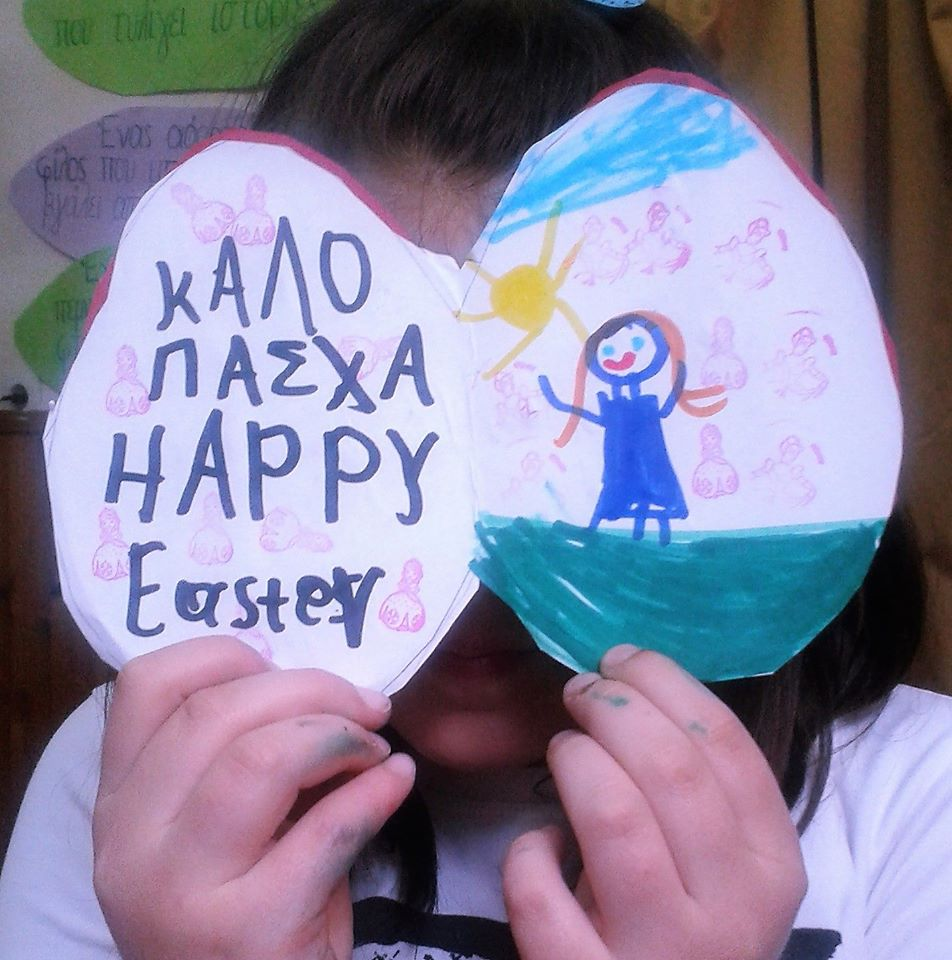 που τυλίγει ιστορί
Ένας
φίλος που
βγάλει απ
ΚΑΛΟ
ΠΑΣΧΑ
HAPPY
Easter